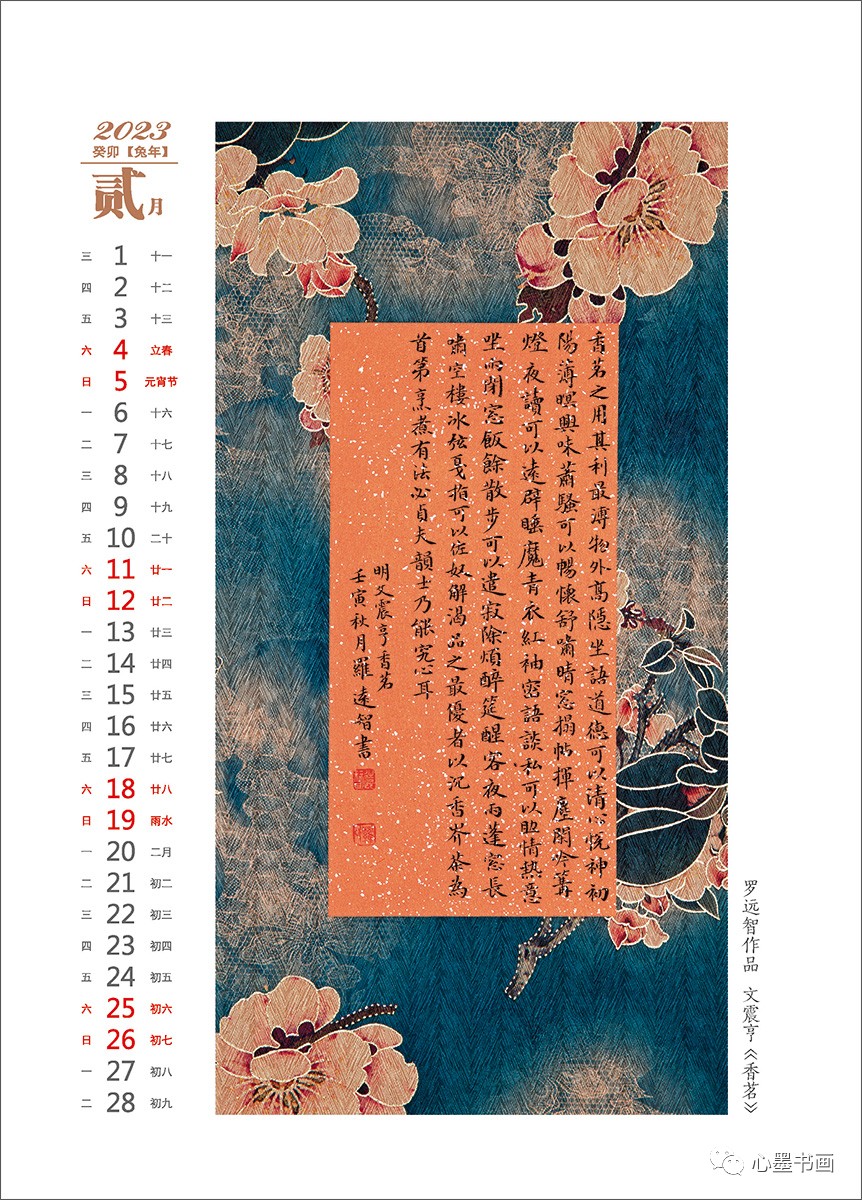 2023
癸卯【兔年】
贰月
三 1 十一
四 2 十二
五 3 十三
六 4 立春
日 5 元宵节
一 6 十六
二 7 十七
三 8 十八
四 9 十九
五 10 二十
六 11 廿一
日 12 廿二
一 13 廿三
二 14 廿四
三 15 廿五
四 16 廿六
五 17 廿七
六 18 廿八
日 19 雨水
一 20 二月
二 21 初二
三 22 初三
四 23 初四
五 24 初五
六 25 初六
日 26 初七
一 27 初八
二 28 初九
香茗之用其利最溥物外高隱坐語道德可以清心悅神初
陽薄暝興味蕭騷可以暢懷舒嘯晴窓搨帖揮麈閑吟篝
燈夜讀可以遠辟睡魔青衣紅袖密語談私可以助情熱意
坐雨閉窓飯餘散步可以遣寂除煩醉筵醒客夜雨蓬窓長
嘯空樓冰弦戛指可以佐欢解渴品之最優者以沉香岕茶為
首第烹煮有法必貞夫韻士乃能究心耳
明文震亨香茗
壬寅秋月羅遠智書
罗远智作品 文震亨《香茗》
心墨书画